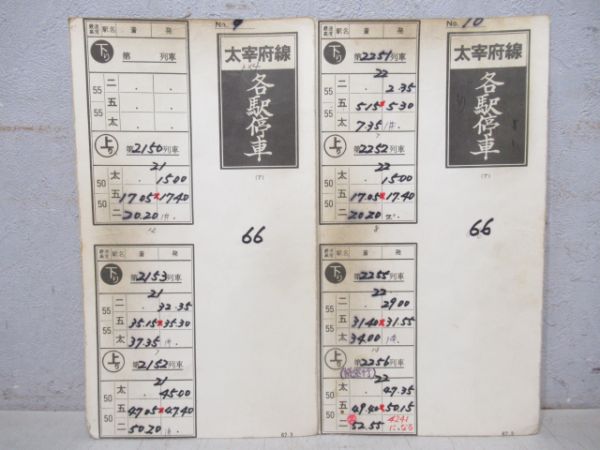 No. 9
最高速度 駅名 着 発
下り 第 列車
二 . .
55 五 . .
55 太 . .
上り 第2150列車
21
太 . 1500
50 五 17.05 x 17.40
50 二 20.20
12
太宰府線
各駅停車
(下)
66
最高速度 駅名 着 発
下り 第2153列車
21
二 . 32.35
55 五 35.15 x 35.30
55 太 37.35
上り 第2152列車
21
太 . 45.00
50 五 47.05 x 47.40
50 二 50.20
62.3
No. 10
最高速度 駅名 着 発
下り 第2251列車
22
二 . 2.35
55 五 5.15 x 5.30
55 太 7.35
7
上り 第2252列車
22
太 . 1500
50 五 17.05 x 17.40
50 二 20.20
8
太宰府線
各駅停車
(下)
66
最高速度 駅名 着 発
下り 第2255列車
22
二 . 29.00
55 五 31.40 x 31.55
55 太 34.00
上り 第2256列車
22
太 . 47.35
50 五 49.40 x 50.15
50 二 52.55
4241
になる
62.3